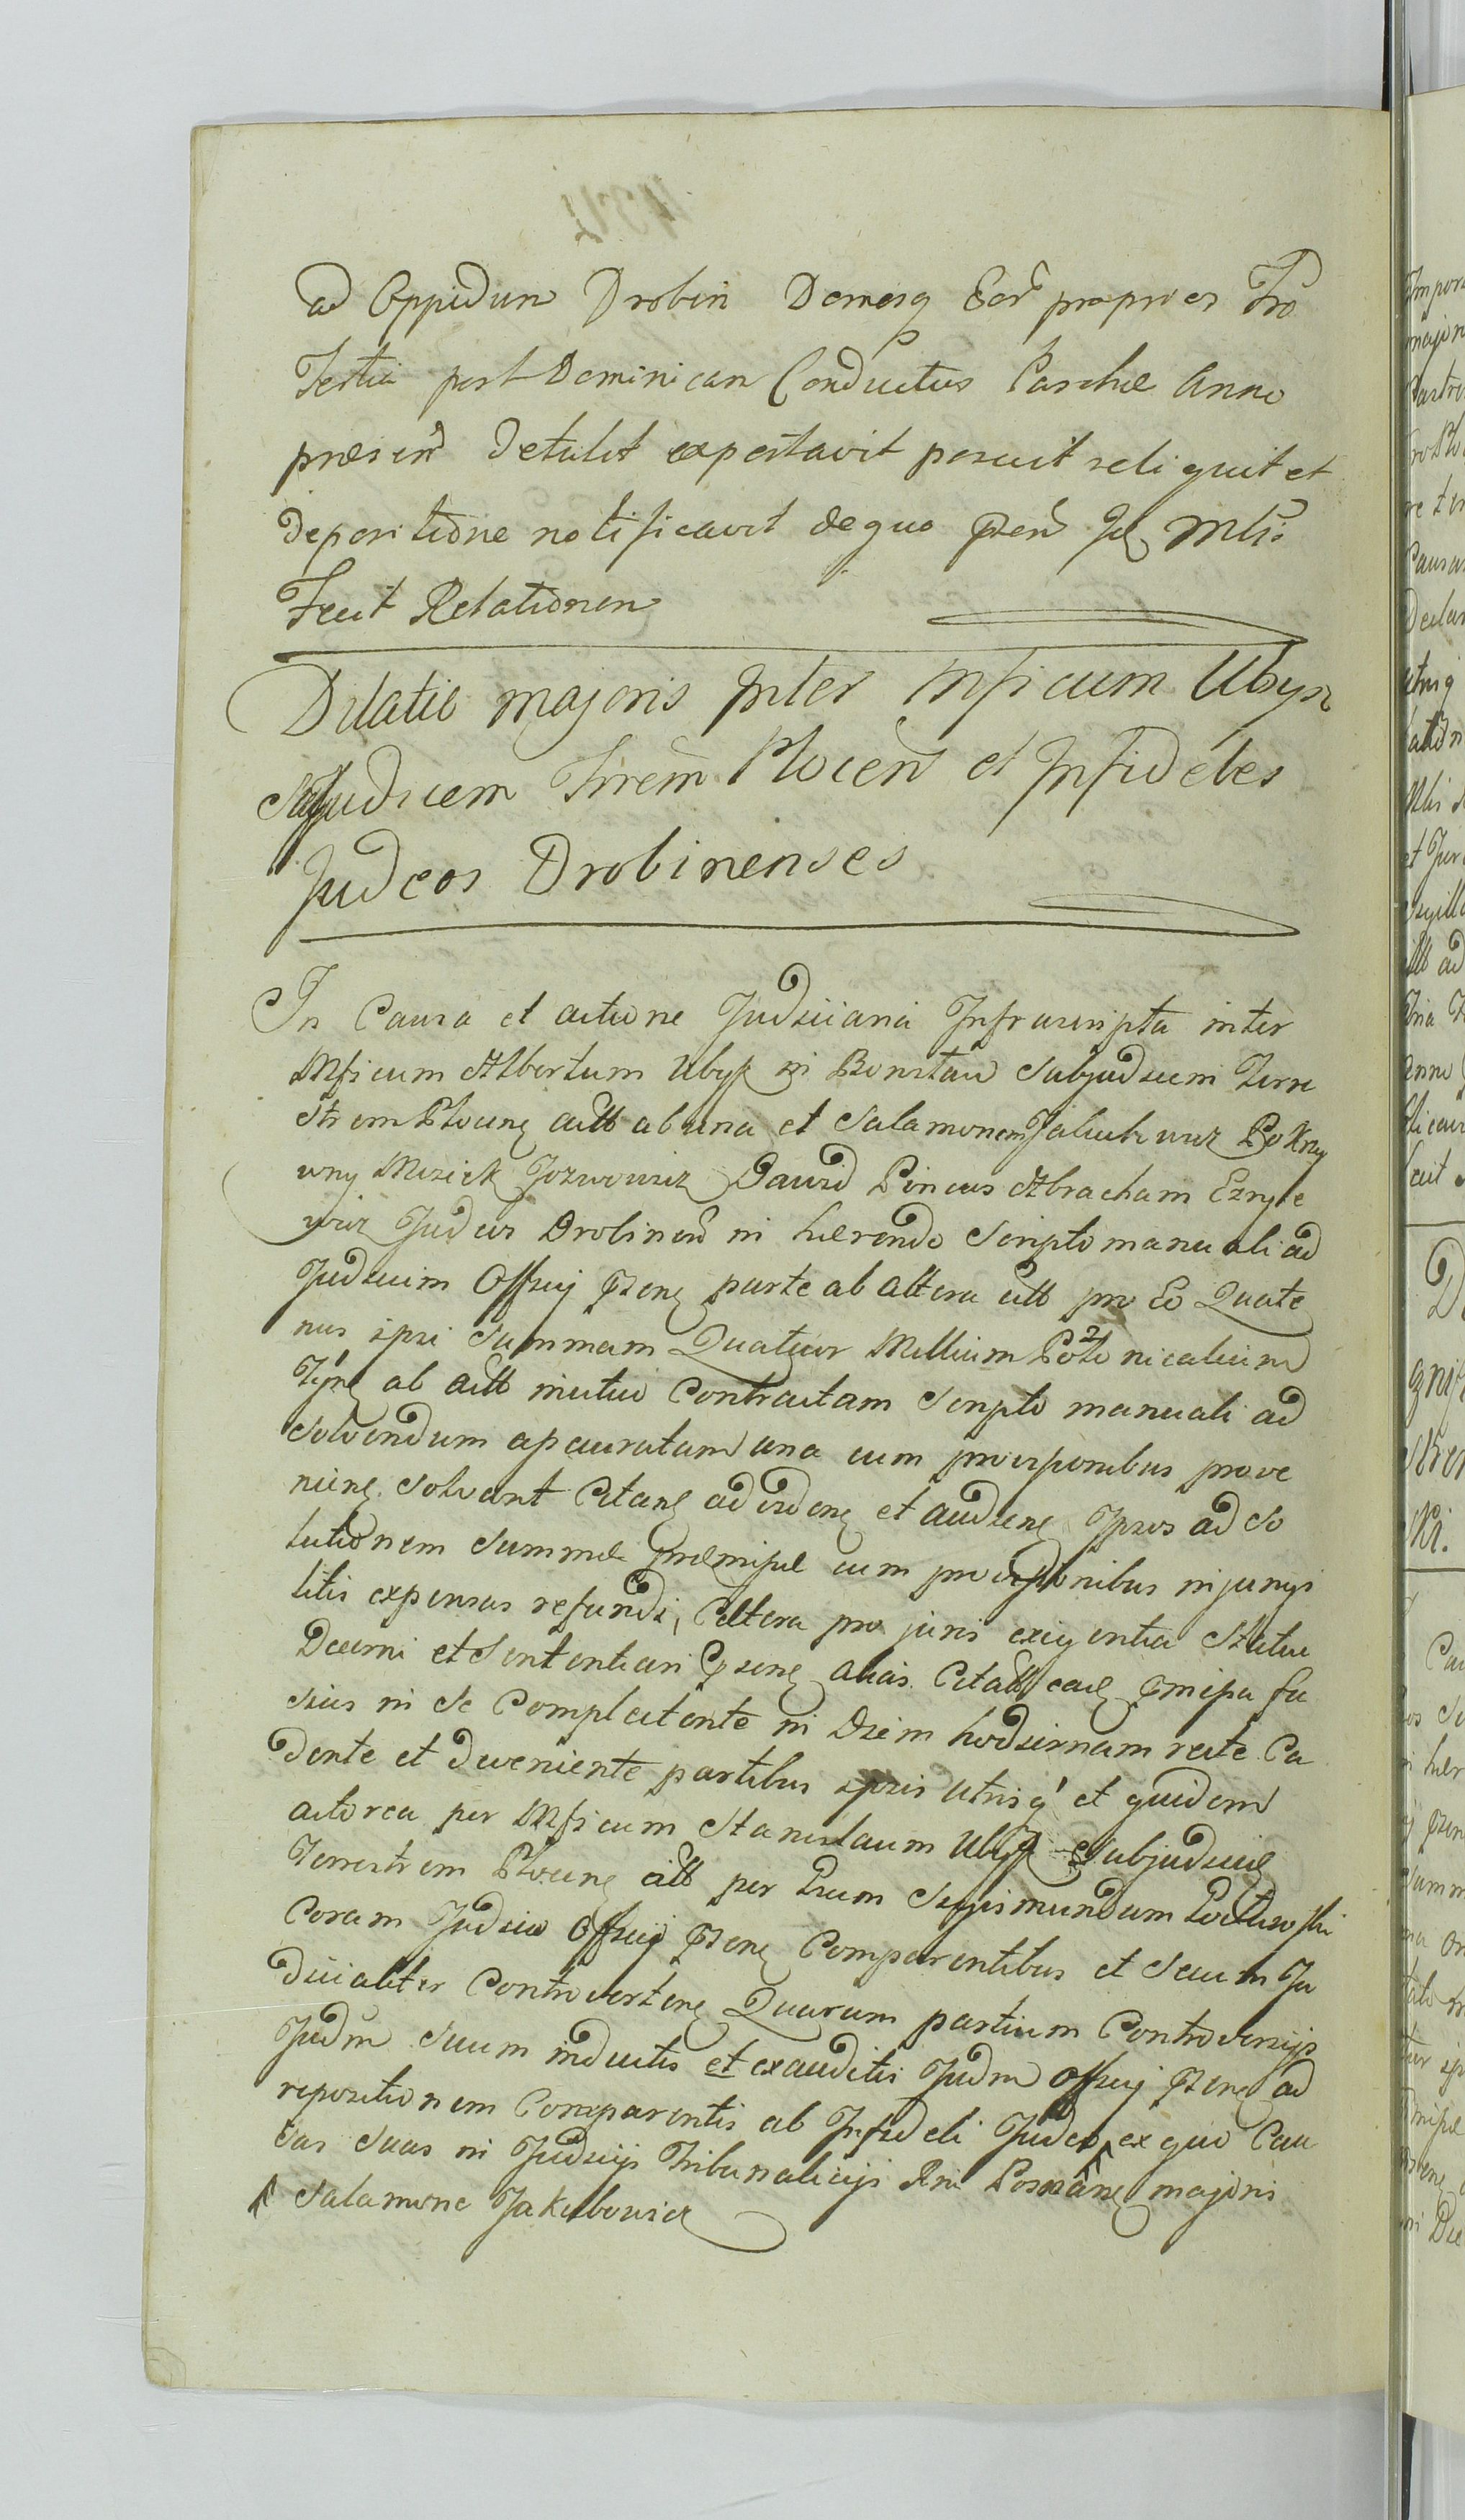 ad Oppidum Drobin Domosq Eorũ proprias Fra
Tertia post Dominicam Conductus Paschæ Anno
præsenti Detulit exportavit posuit reliquit et
depositione notificavit de quo Prñs Mlis
Fecit Relationem
Dilatio majoris Inter Mficum Ubysz
Subjudicem Trrem Plocen et Infideles
Judæos Drobinenses
In Causa et actione Judiciaria Infrascripta inter
Mficum Albertum Ubysz in Bonislaw Subjudicem Terre
strem Plocens actt ab una et Salamonem Jakubowicz
wny Mosiek Jozwowicz Dawid Pincus Abracham Ezryle
wicz Judæos Drobinens in hærendo Scripto manuali ad
Judicium Officij Prens parte ab altera citt pro Eo Quate
nus ipsi Summam Quatuor Millium Polonicalium
flnr ab actt mutuo Contractam Scripto manuali ad
Solvendum apcauratam una cum provisionibus prove
niens Solvant Citans ad videns et audiens Ipsos ad So
lutionem Summæ præmissæ cum provisionibus injungi
litis expensas refundi, Cætera pro juris exigentia Statui
Decerni et Sententiari Prens alias Citatt eaqz pmissa fu
sius in Se Complectente in Diem hodiernam recte Ca
dente et deveniente partibus ipsis utrisq' et quidem
actorea per Mficum Stanislaum Ubysz Subjudicem
Terrestrem Plocens citt per Sigismundum
Coram Judicio Officij Prens Comparentibus et Secum Ju
dicialiter Controvertens Quarum partium Controversijs
Judm Suum inductis et exauditis Judm Officij Prens ad
repositionem Comparentis ab Infideli Judeo ^ ex quo Cau
sas Suas in Judicijs Tribunalicijs Rni Posnâns majoris
^ Salamone Jakubowicz